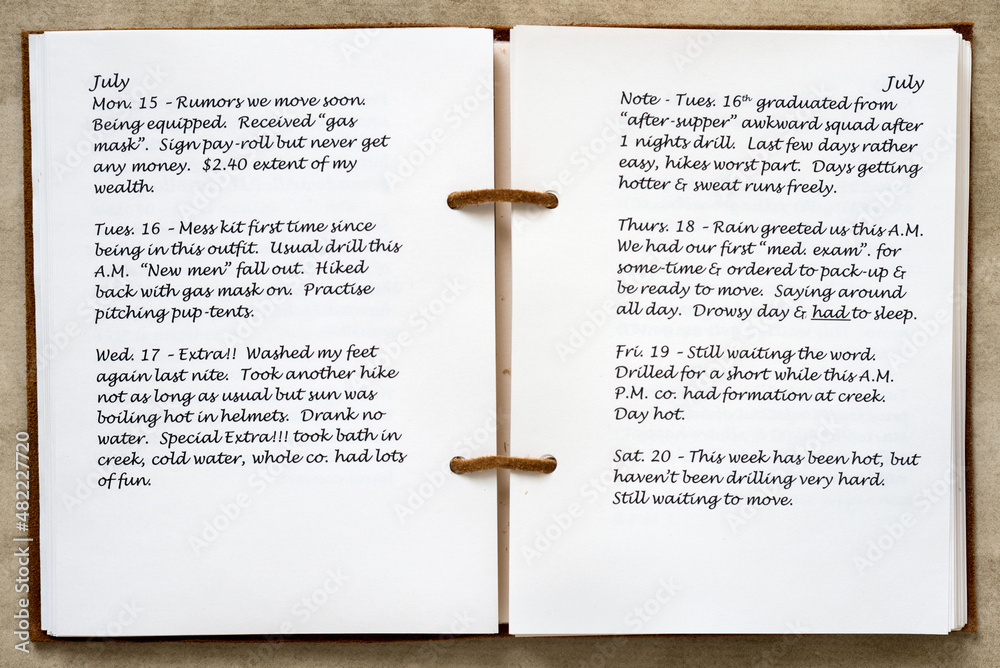 July
Mon. 15 – Rumors we move soon.
Being equipped. Received “gas
mask”. Sign pay-roll but never get
any money. $2.40 extent of my
wealth.
Tues. 16 – Mess kit first time since
being in this outfit. Usual drill this
A.M. “New men” fall out. Hiked
back with gas mask on. Practise
pitching pup-tents.
Wed. 17 – Extra!! Washed my feet
again last nite. Took another hike
not as long as usual but sun was
boiling hot in helmets. Drank no
water. Special Extra!!! took bath in
creek, cold water, whole co. had lots
of fun.
July
Note - Tues. 16th graduated from
“after-supper” awkward squad after
1 nights drill. Last few days rather
easy, hikes worst part. Days getting
hotter & sweat runs freely.
Thurs. 18 – Rain greeted us this A.M.
We had our first “med. exam”. for
some-time & ordered to pack-up &
be ready to move. Saying around
all day. Drowsy day & had to sleep.
Fri. 19 – Still waiting the word.
Drilled for a short while this A.M.
P.M. co. had formation at creek.
Day hot.
Sat. 20 – This week has been hot, but
haven’t been drilling very hard.
Still waiting to move.
Adobe Stock | #482227720